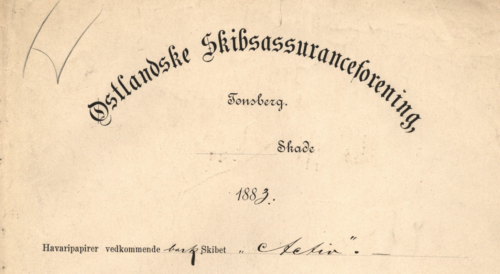 Østlandske Skibsassuranceforening,
Tonsberg.
Skade
1883.
Havaripapirer vedkommende bark Skibet "Activ".